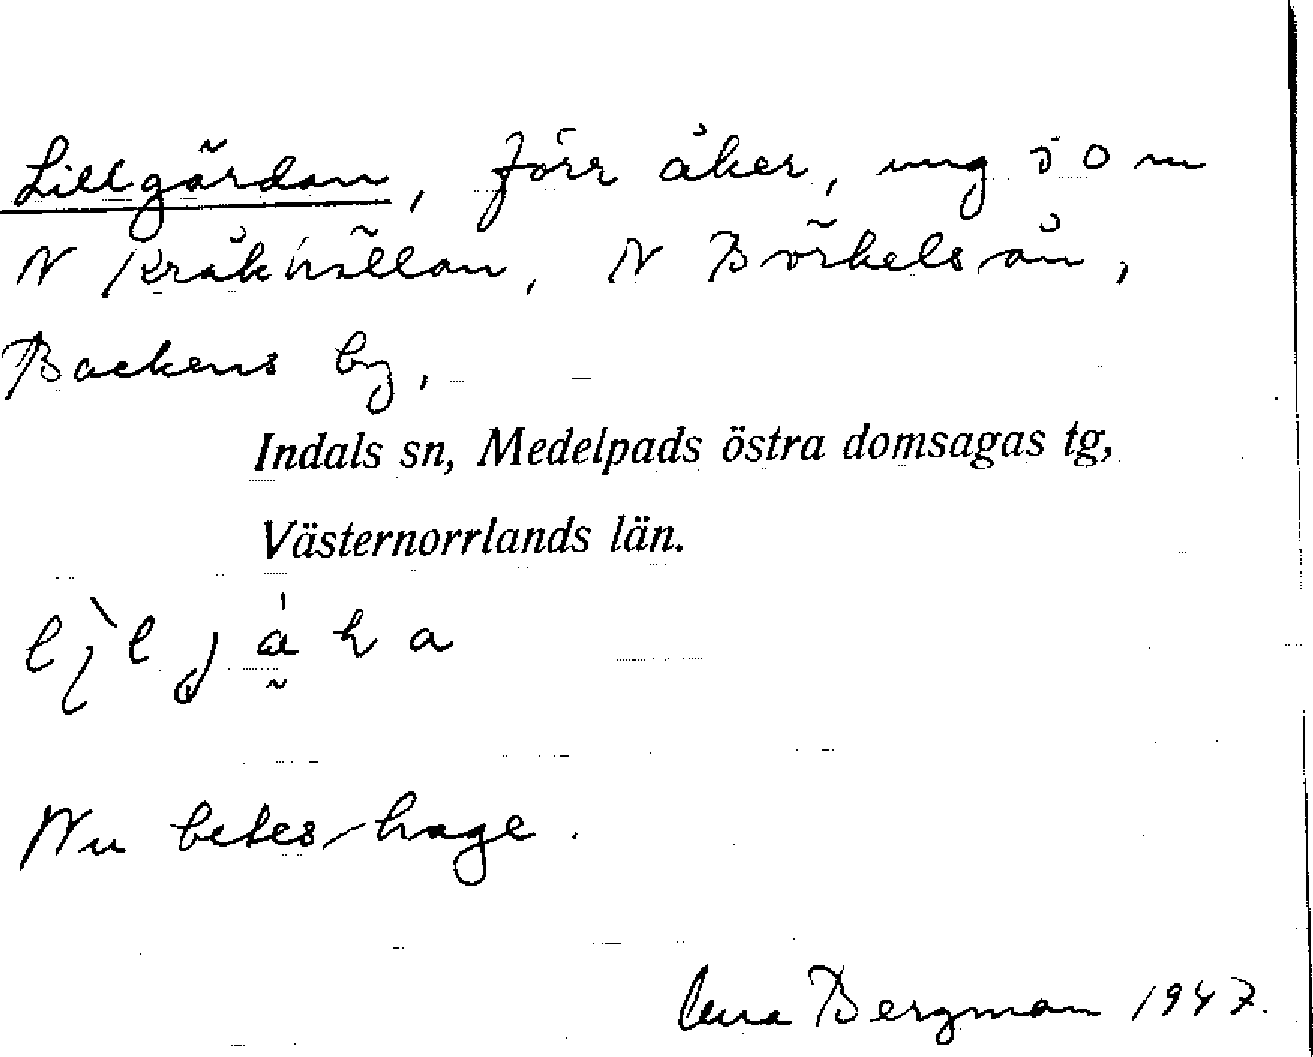 Lillgärdan, förr åker, ung 50 m
N Kråkhällan, N Börkelsån,
Backens by,
Indals sn, Medelpads östra domsagas tg,
Västernorrlands län.
Nu beteshage.
Bergman 1947.